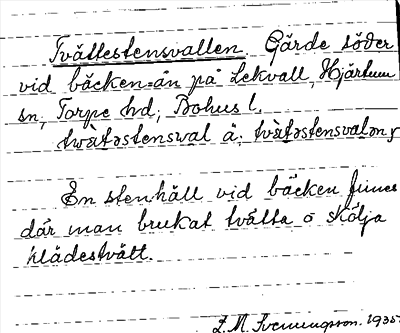 Tvättestensvallen. Gärde söder
vid bäcken-ån på Lekvall, Hjärtum
sn, Torpe hd, Bohus l.
tvätəstensval å; tvätəstensvalən,
En stenhäll vid bäcken finnes
där man brukat tvätta o skölja
klädestvätt.
L.M. Svenungsson. 1935.